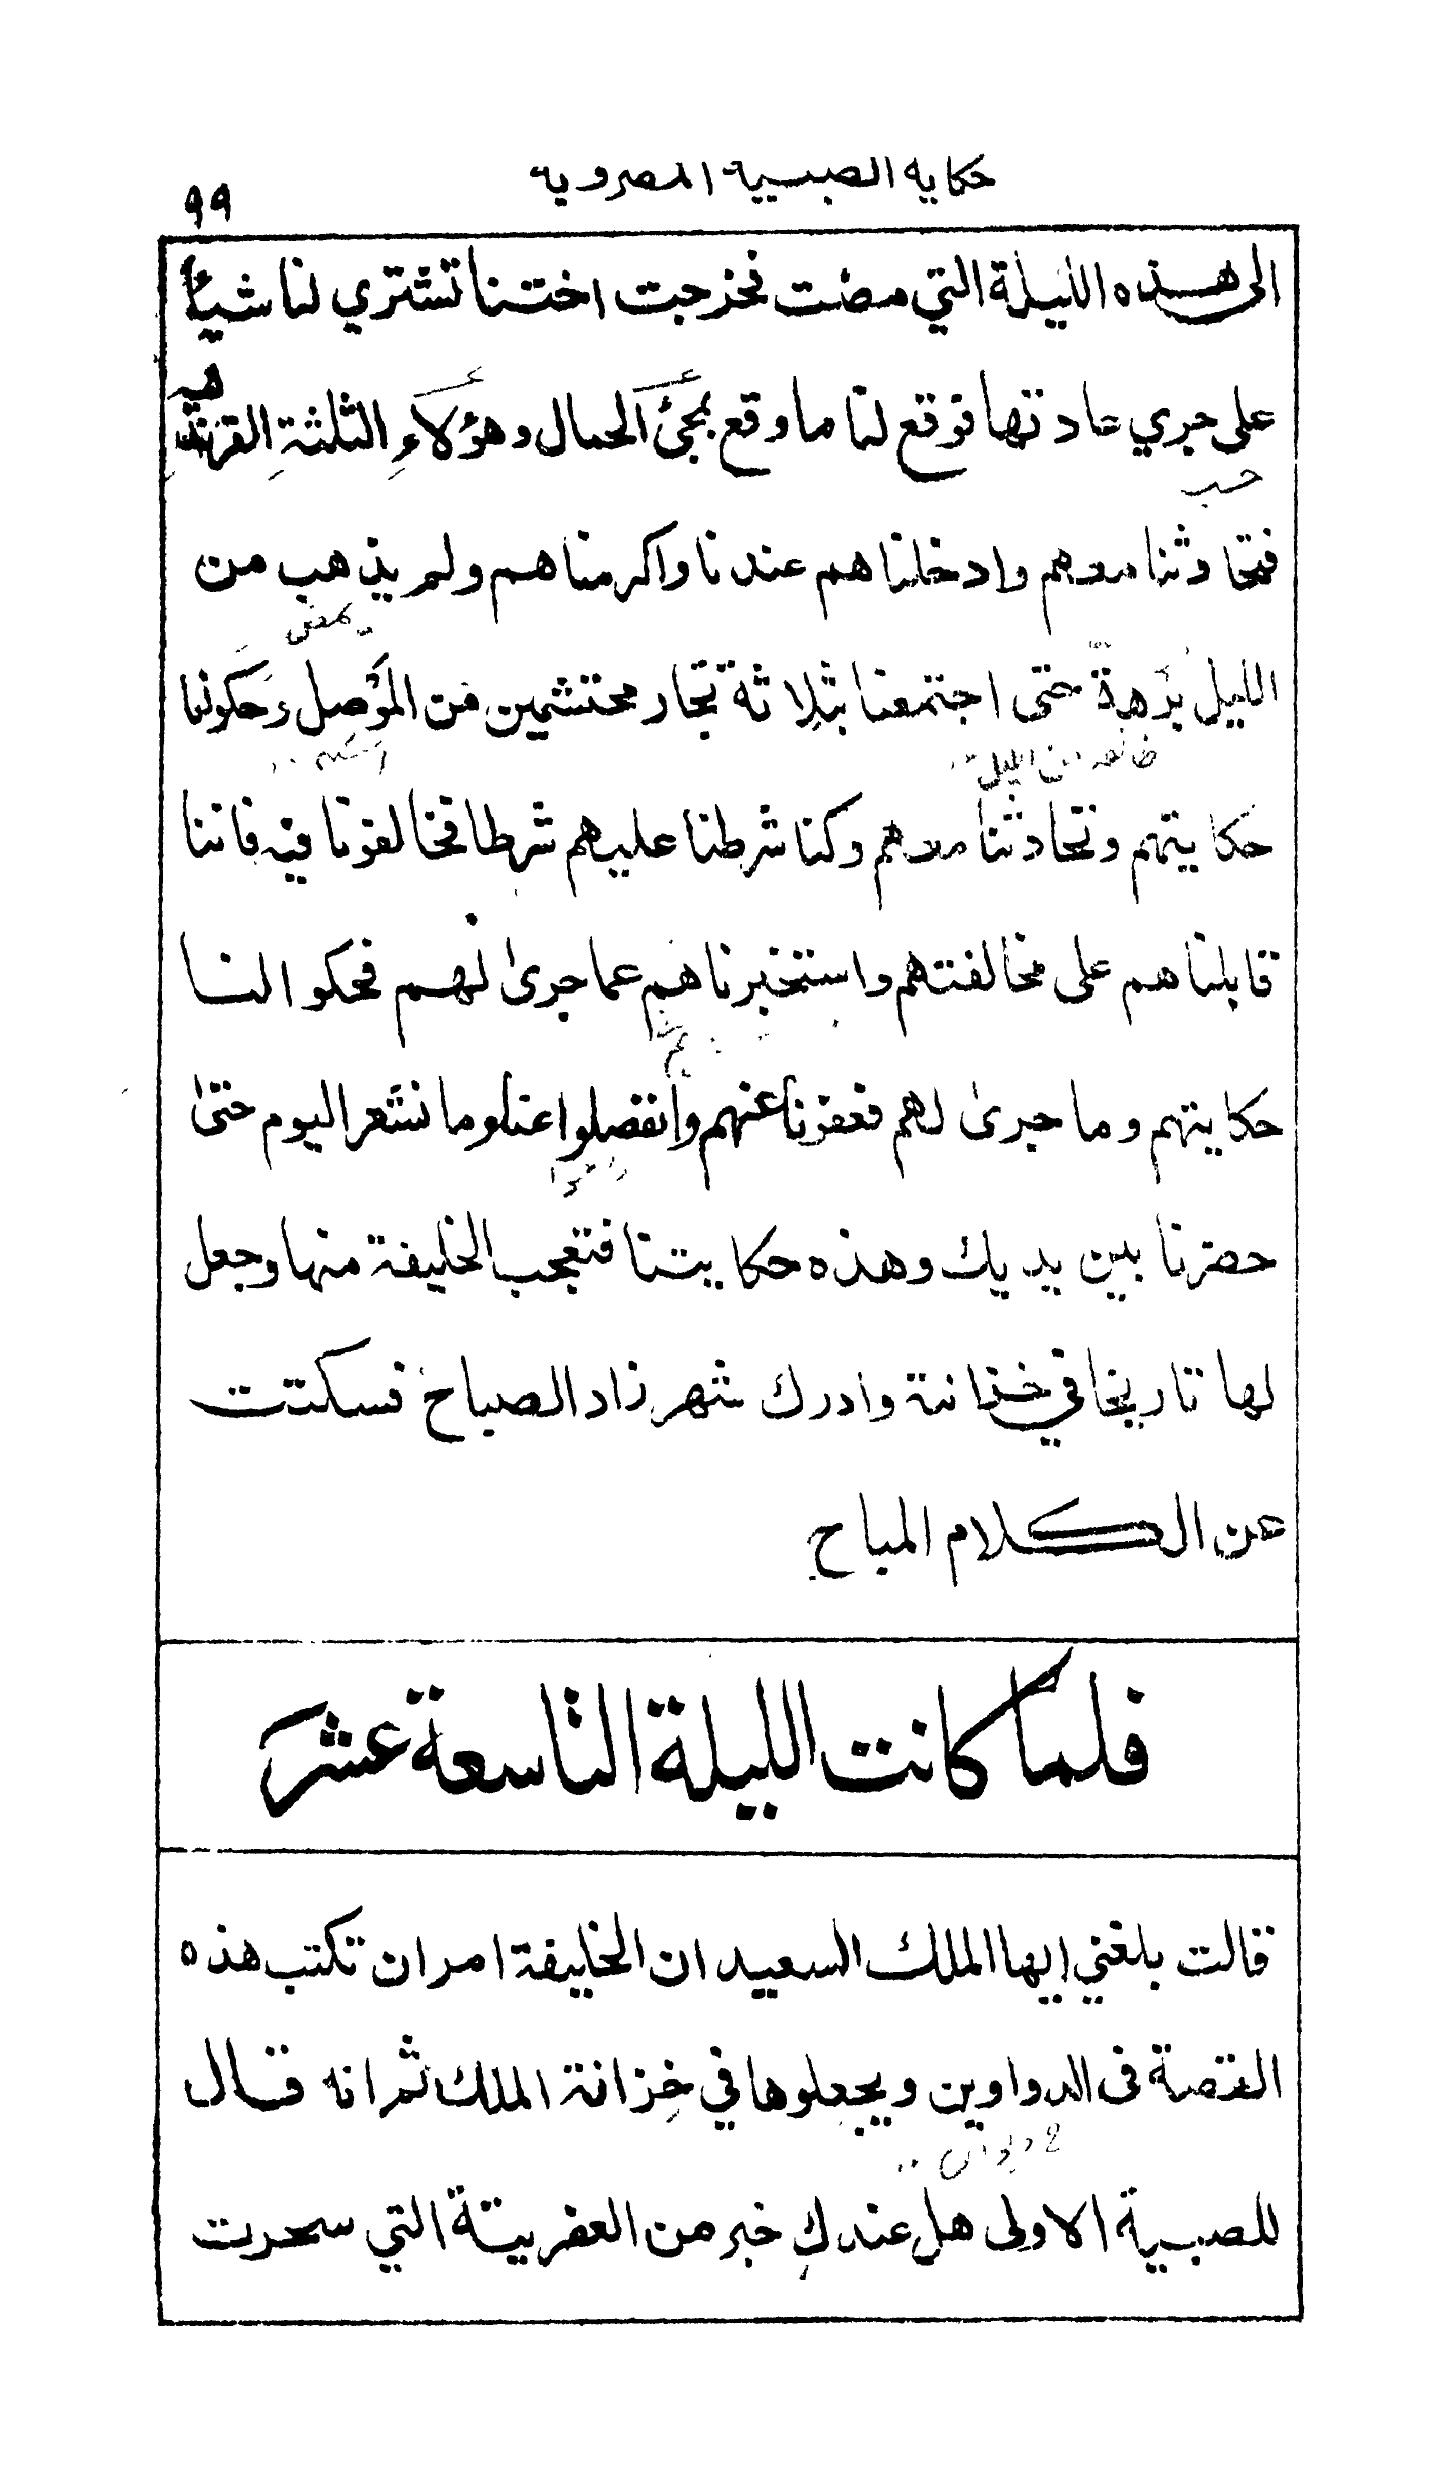 حكاية الصبية المضروبة
٩٩
الى هذه الليلة التي مضت فخرجت اختنا تشتري لنا شيأ
على جري عادتها فوقع لنا ما وقع بمجئ الحمال وهؤلاءِ الثلثةِ القرندلية
فتحادثنا معهم وادخلناهم عندنا واكرمناهم ولم يذهب من
الليل بُرهةٌ حتى اجتمعنا بثلاثة تجار محتشمين من المَوْصِل وَحَكَوْلنا
حكايتهم وتحادثنا معهم وكنا شرطنا عليهم شرطا فخالفونا فيه فاننا
قابلناهم على مخالفتهم واستخبرناهم عما جرىٰ لهم فحكوا لنا
حكايتهم وما جرىٰ لهم فعفونا عنهم وانفصلوا عنا وما نشعر اليوم حتىٰ
حضرنا بين يديك وهذه حكايتنا فتعجب الخليفة منها وجعل
لها تاريخا في خزانته وادرك شهرزاد الصباح فسكتت
عن الكلام المباح
فلما كانت الليلة التاسعة عشر
قالت بلغني ايها الملك السعيد ان الخليفة امر ان تكتب هذه
القصة فى الدواوين ويجعلوها في خِزانة الملك ثم انه قال
للصبية الاولى هل عندكِ خبر من العفريتة التي سحرت